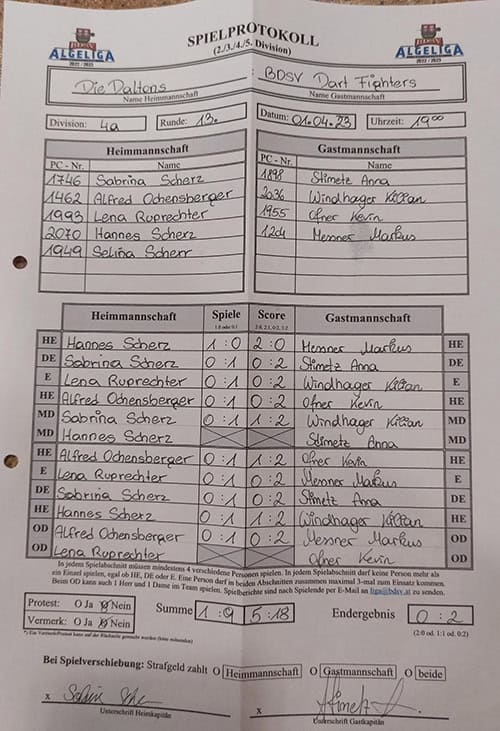 BDSV
ALGELIGA
2022 / 2023
SPIELPROTOKOLL
(2./3./4./5. Division)
BDSV
ALGELIGA
2022 / 2023
Die Daltons
Name Heimmannschaft
BDSV Dart Fighters
Name Gastmannschaft
Division: 4a
Runde: 13.
Datum: 01.04.23
Uhrzeit: 19 00
Heimmannschaft
PC - Nr. Name
1746 Sabrina Scherz
1462 Alfred Ochensberger
1993 Lena Ruprechter
2070 Hannes Scherz
1949 Selina Scherr
Gastmannschaft
PC - Nr. Name
1898 Stimetz Anna
2036 Windhager Kilian
1955 Ofner Kevin
1204 Messner Markus
Heimmannschaft Spiele Score Gastmannschaft
1:0 oder 0:1 2:0, 2:1, 0:2, 1:2
HE Hannes Scherz 1 : 0 2 : 0 Messner Markus HE
DE Sabrina Scherz 0 : 1 0 : 2 Stimetz Anna DE
E Lena Ruprechter 0 : 1 0 : 2 Windhager Kilian E
HE Alfred Ochensberger 0 : 1 0 : 2 Ofner Kevin HE
MD Sabrina Scherz 0 : 1 1 : 2 Windhager Kilian MD
MD Hannes Scherz Stimetz Anna MD
HE Alfred Ochensberger 0 : 1 1 : 2 Ofner Kevin HE
E Lena Ruprechter 0 : 1 0 : 2 Messner Markus E
DE Sabrina Scherz 0 : 1 0 : 2 Stimetz Anna DE
HE Hannes Scherz 0 : 1 1 : 2 Windhager Kilian HE
OD Alfred Ochensberger 0 : 1 0 : 2 Messner Markus OD
OD Lena Ruprechter Ofner Kevin OD
In jedem Spielabschnitt müssen mindestens 4 verschiedene Personen spielen. In jedem Spielabschnitt darf keine Person mehr als
ein Einzel spielen, egal ob HE, DE oder E. Eine Person darf in beiden Abschnitten zusammen maximal 3-mal zum Einsatz kommen.
Beim OD kann auch 1 Herr und 1 Dame im Team spielen. Spielberichte sind nach Spielende per E-Mail an liga@bdsv.at zu senden.
Protest: O Ja O Nein
Vermerk: O Ja O Nein
Summe 1 : 9 5 : 18 Endergebnis 0 : 2
(2:0 od. 1:1 od. 0:2)
*) Ein Vermerk/Protest kann auf der Rückseite gemacht werden (bitte ankreuzen)
Bei Spielverschiebung: Strafgeld zahlt O Heimmannschaft O Gastmannschaft O beide
x
Unterschrift Heimkapitän
x Stimetz A.
Unterschrift Gastkapitän